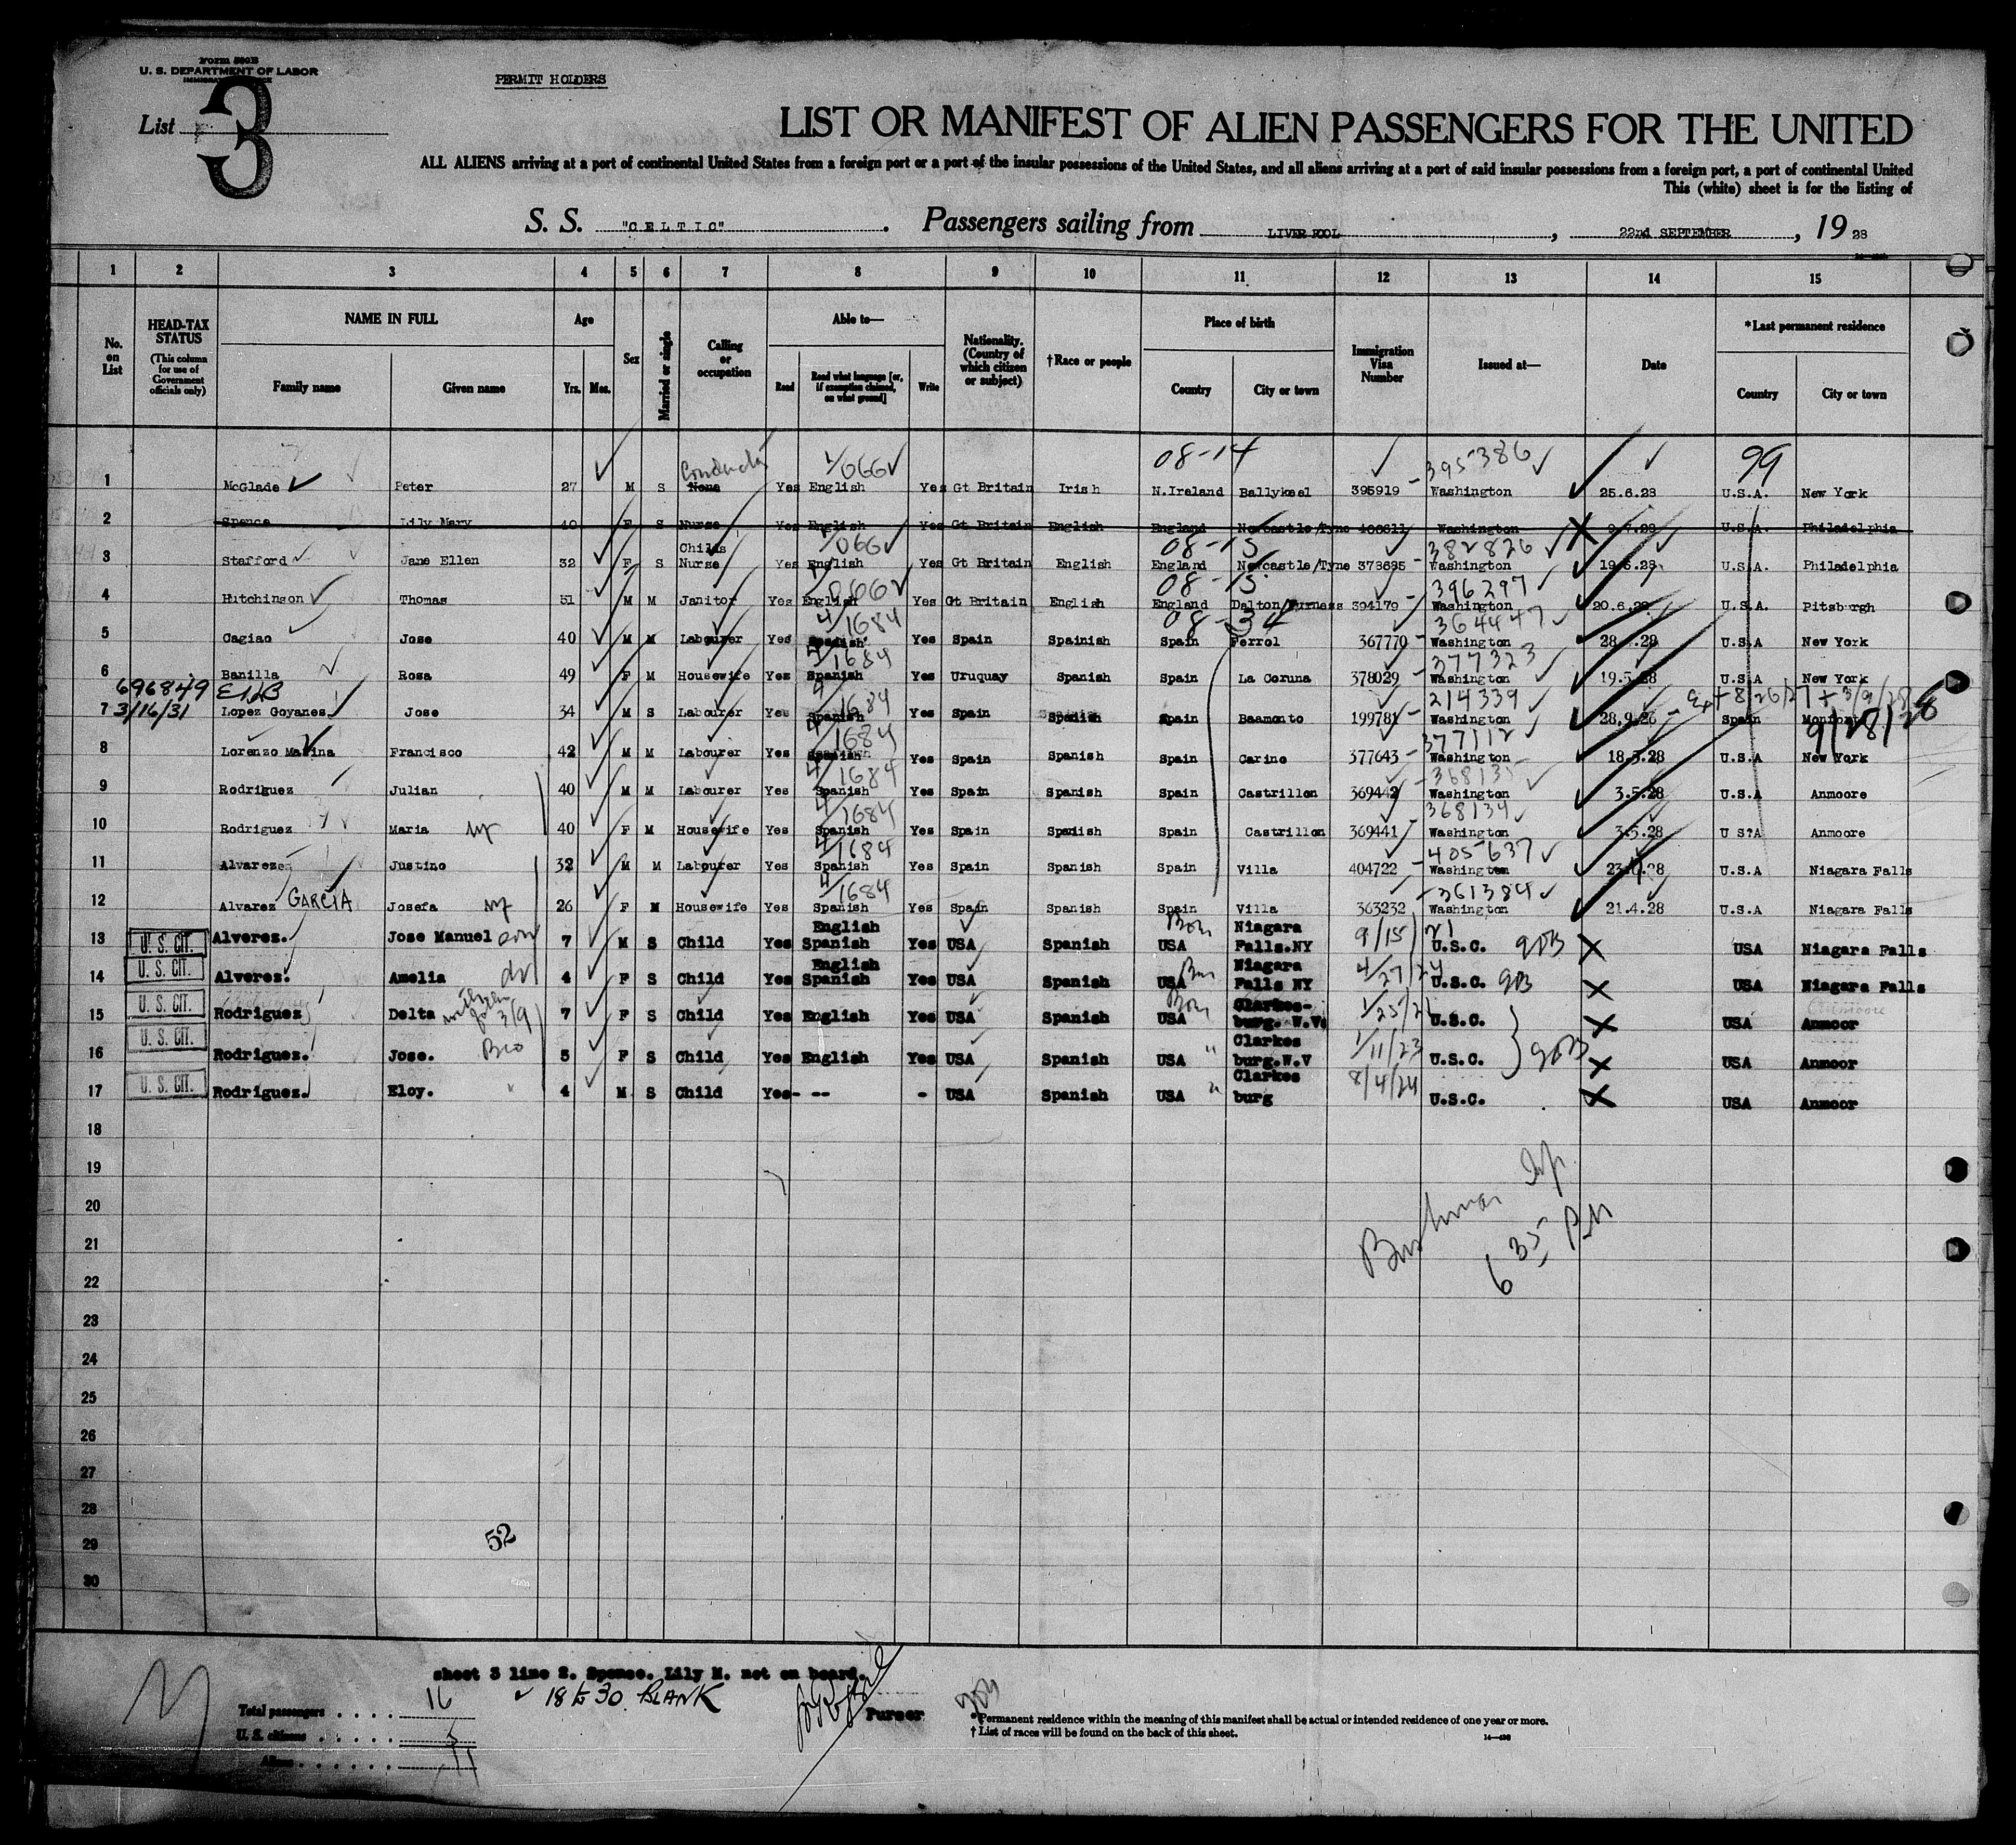 Form 500B
U. S. DEPARTMENT OF LABOR
PERMIT HOLDERS
List 3
LIST OR MANIFEST OF ALIEN PASSENGERS FOR THE UNITED
ALL ALIENS arriving at a port of continental United States from a foreign port or a port of the insular possessions of the United States, and all aliens arriving at a port of said insular possessions from a foreign port, a port of continental United
This (white) sheet is for the listing of
S. S. "CELTIC". Passengers sailing from LIVERPOOL, 22nd SEPTEMBER, 19 28
1 2 3 4 5 6 7 8 9 10 11 12 13 14 15
No. on List
HEAD-TAX STATUS (This column for use of Government officials only)
NAME IN FULL
Family name Given name
Age
Yrs. Mos.
Sex
Married or single
Calling or occupation
Able to—
Read Read what language [or, if exemption claimed, on what ground] Write
Nationality. (Country of which citizen or subject)
†Race or people
Place of birth
Country City or town
Immigration Visa Number
Issued at—
Date
*Last permanent residence
Country City or town
Conductor 1/066 08-14 395386 99
1 McGlade Peter 27 M S None Yes English Yes Gt Britain Irish N.Ireland Ballykeel 395919 Washington 25.6.28 U.S.A. New York
2 Spence Lily Mary 40 F S Nurse Yes English Yes Gt Britain English England Newcastle/Tyne Washington U.S.A. Philadelphia
1/066 08-15 382826
3 Stafford Jane Ellen 32 F S Childs Nurse Yes English Yes Gt Britain English England Newcastle/Tyne 378685 Washington 19.5.28 U.S.A. Philadelphia
1/066 08-15 396297
4 Hutchinson Thomas 51 M M Janitor Yes English Yes Gt Britain English England Dalton/Furness 394179 Washington 20.6.28 U.S.A. Pitsburgh
4/1684 08-34 364447
5 Cagiao Jose 40 M M Labourer Yes Spanish Yes Spain Spainish Spain Ferrol 367770 Washington U.S.A New York
4/1684 377323
6 Banilla Rosa 49 F M Housewife Yes Spanish Yes Uruquay Spanish Spain La Coruna 378029 Washington 19.5.28 U.S.A New York
696849 4/1684 214339 Ext 8/26/27 + 3/9/28
7 3/16/31 Lopez Goyanes Jose 34 M S Labourer Yes Spanish Yes Spain Spanish Spain Baamonto 199781 Washington 28,9.26 Spain 9/28/28
4/1684 377112
8 Lorenzo Marina Francisco 42 M M Labourer Yes Spanish Yes Spain Spanish Spain Carino 377643 Washington 18.5.28 U.S.A New York
4/1684 368135
9 Rodriguez Julian 40 M M Labourer Yes Spanish Yes Spain Spanish Spain Castrillon 369442 Washington 3.5.28 U.S.A Anmoore
4/1684 368134
10 Rodriguez Maria wf 40 F M Housewife Yes Spanish Yes Spain Spaniish Spain Castrillon 369441 Washington 3.5.28 U S?A Anmoore
4/1684 405637
11 Alvarez Justino 32 M M Labourer Yes Spanish Yes Spain Spanish Spain Villa 404722 Washington U.S.A Niagara Falls
4/1684 361384
12 Alvarez GARCIA Josefa wf 26 F M Housewife Yes Spanish Yes Spain Spanish Spain Villa 363232 Washington 21.4.28 U.S.A Niagara Falls
13 U. S. CIT. Alverez. Jose Manuel son 7 M S Child Yes English Spanish Yes USA Spanish USA Niagara Falls.NY 9/15/21 U.S.C. X USA Niagara Falls
14 U. S. CIT. Alverez. Amelia 4 F S Child Yes English Spanish Yes USA Spanish USA Niagara Falls NY 4/27/24 U.S.C. X USA Niagara Falls
15 U. S. CIT. Rodriguez Delta 7 F S Child Yes English Yes USA Spanish USA Clarkes-burg. W.V. 1/25/21 U.S.C. X USA Anmoor
16 U. S. CIT. Rodriguez. Jose. Bro 5 F S Child Yes English Yes USA Spanish USA " Clarkes burg.W.V 1/11/23 U.S.C. X USA Anmoor
17 U. S. CIT. Rodriguez. Eloy. " 4 M S Child Yes- -- - USA Spanish USA " Clarkes burg 8/4/24 U.S.C. X USA Anmoor
18
19
20
21
22
23
24
25
26
27
28
29
30
635 PM
52
sheet 3 line 2. Spence. Lily M. not on board.
18 to 30 BLANK
Purser
Total passengers . . . . 16
U. S. citizens . . . . . 5
Aliens . . . . . . 11
*Permanent residence within the meaning of this manifest shall be actual or intended residence of one year or more.
† List of races will be found on the back of this sheet.